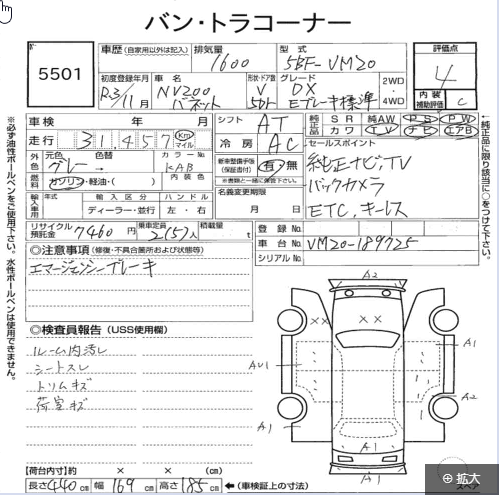 バン・トラコーナー
5501
車歴 (自家用以外は記入)
排気量 1600
型式 5BF-VM20
評価点 4
初度登録年月 R3/11月
車名 NV200 バネット
形状・ドア数 V 5Dr
グレード DX Eブレーキ標準
2WD・4WD
内装補助評価 C
車検 年 月
シフト AT
純正品 SR 純AW PS PW
カワ TV ナビ エアB
走行 31,457 Km マイル
冷房 AC
セールスポイント
純正ナビ,TV
バックカメラ
ETC,キーレス
外色 元色 グレー 色替 カラーNo KAB
新車整備手帳 (保証書付) 有・無
燃料 ガソリン・軽油・( ) 内装色
名義変更期限 月 日
輸入車用 年式 輸入区分 ハンドル
ディーラー・並行 左・右
リサイクル預託金 7460円
乗車定員 2(5)人
積載量 t
登録No.
車台No. VM20-189725
シリアルNo.
◎注意事項 (修復・不具合箇所および状態等)
エマージェンシーブレーキ
◎検査員報告 (USS使用欄)
ルーム内汚レ
シートスレ
トリムキズ
荷室キズ
【荷台内寸】約 × × (cm)
長さ 440 cm 幅 169 cm 高さ 185 cm ←(車検証上の寸法)
※必ず油性ボールペンをご使用下さい。水性ボールペンは使用できません。
←純正品に限り該当に○をつけて下さい。
A2
××
××
A1
AU1
A2
A1
A1
A1
拡大